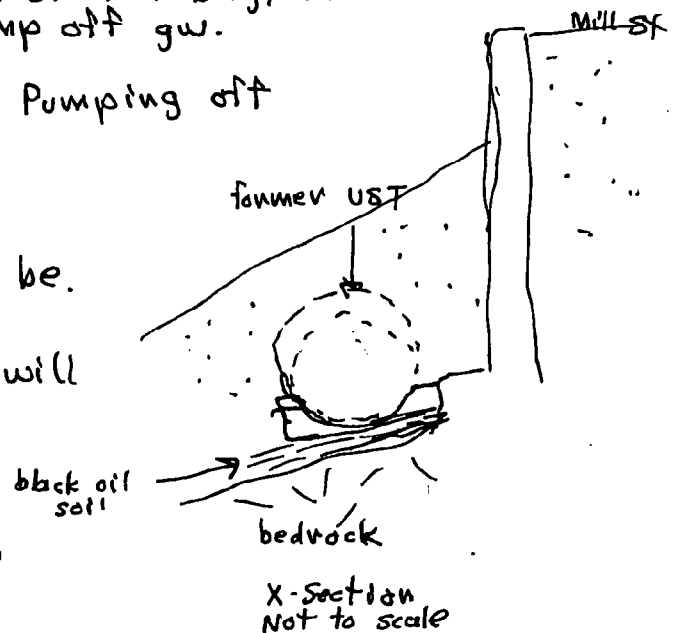 mp off gw.
Mill St
Pumping off
former UST
be.
will
black oil
soil
bedrock
X-Section
Not to scale